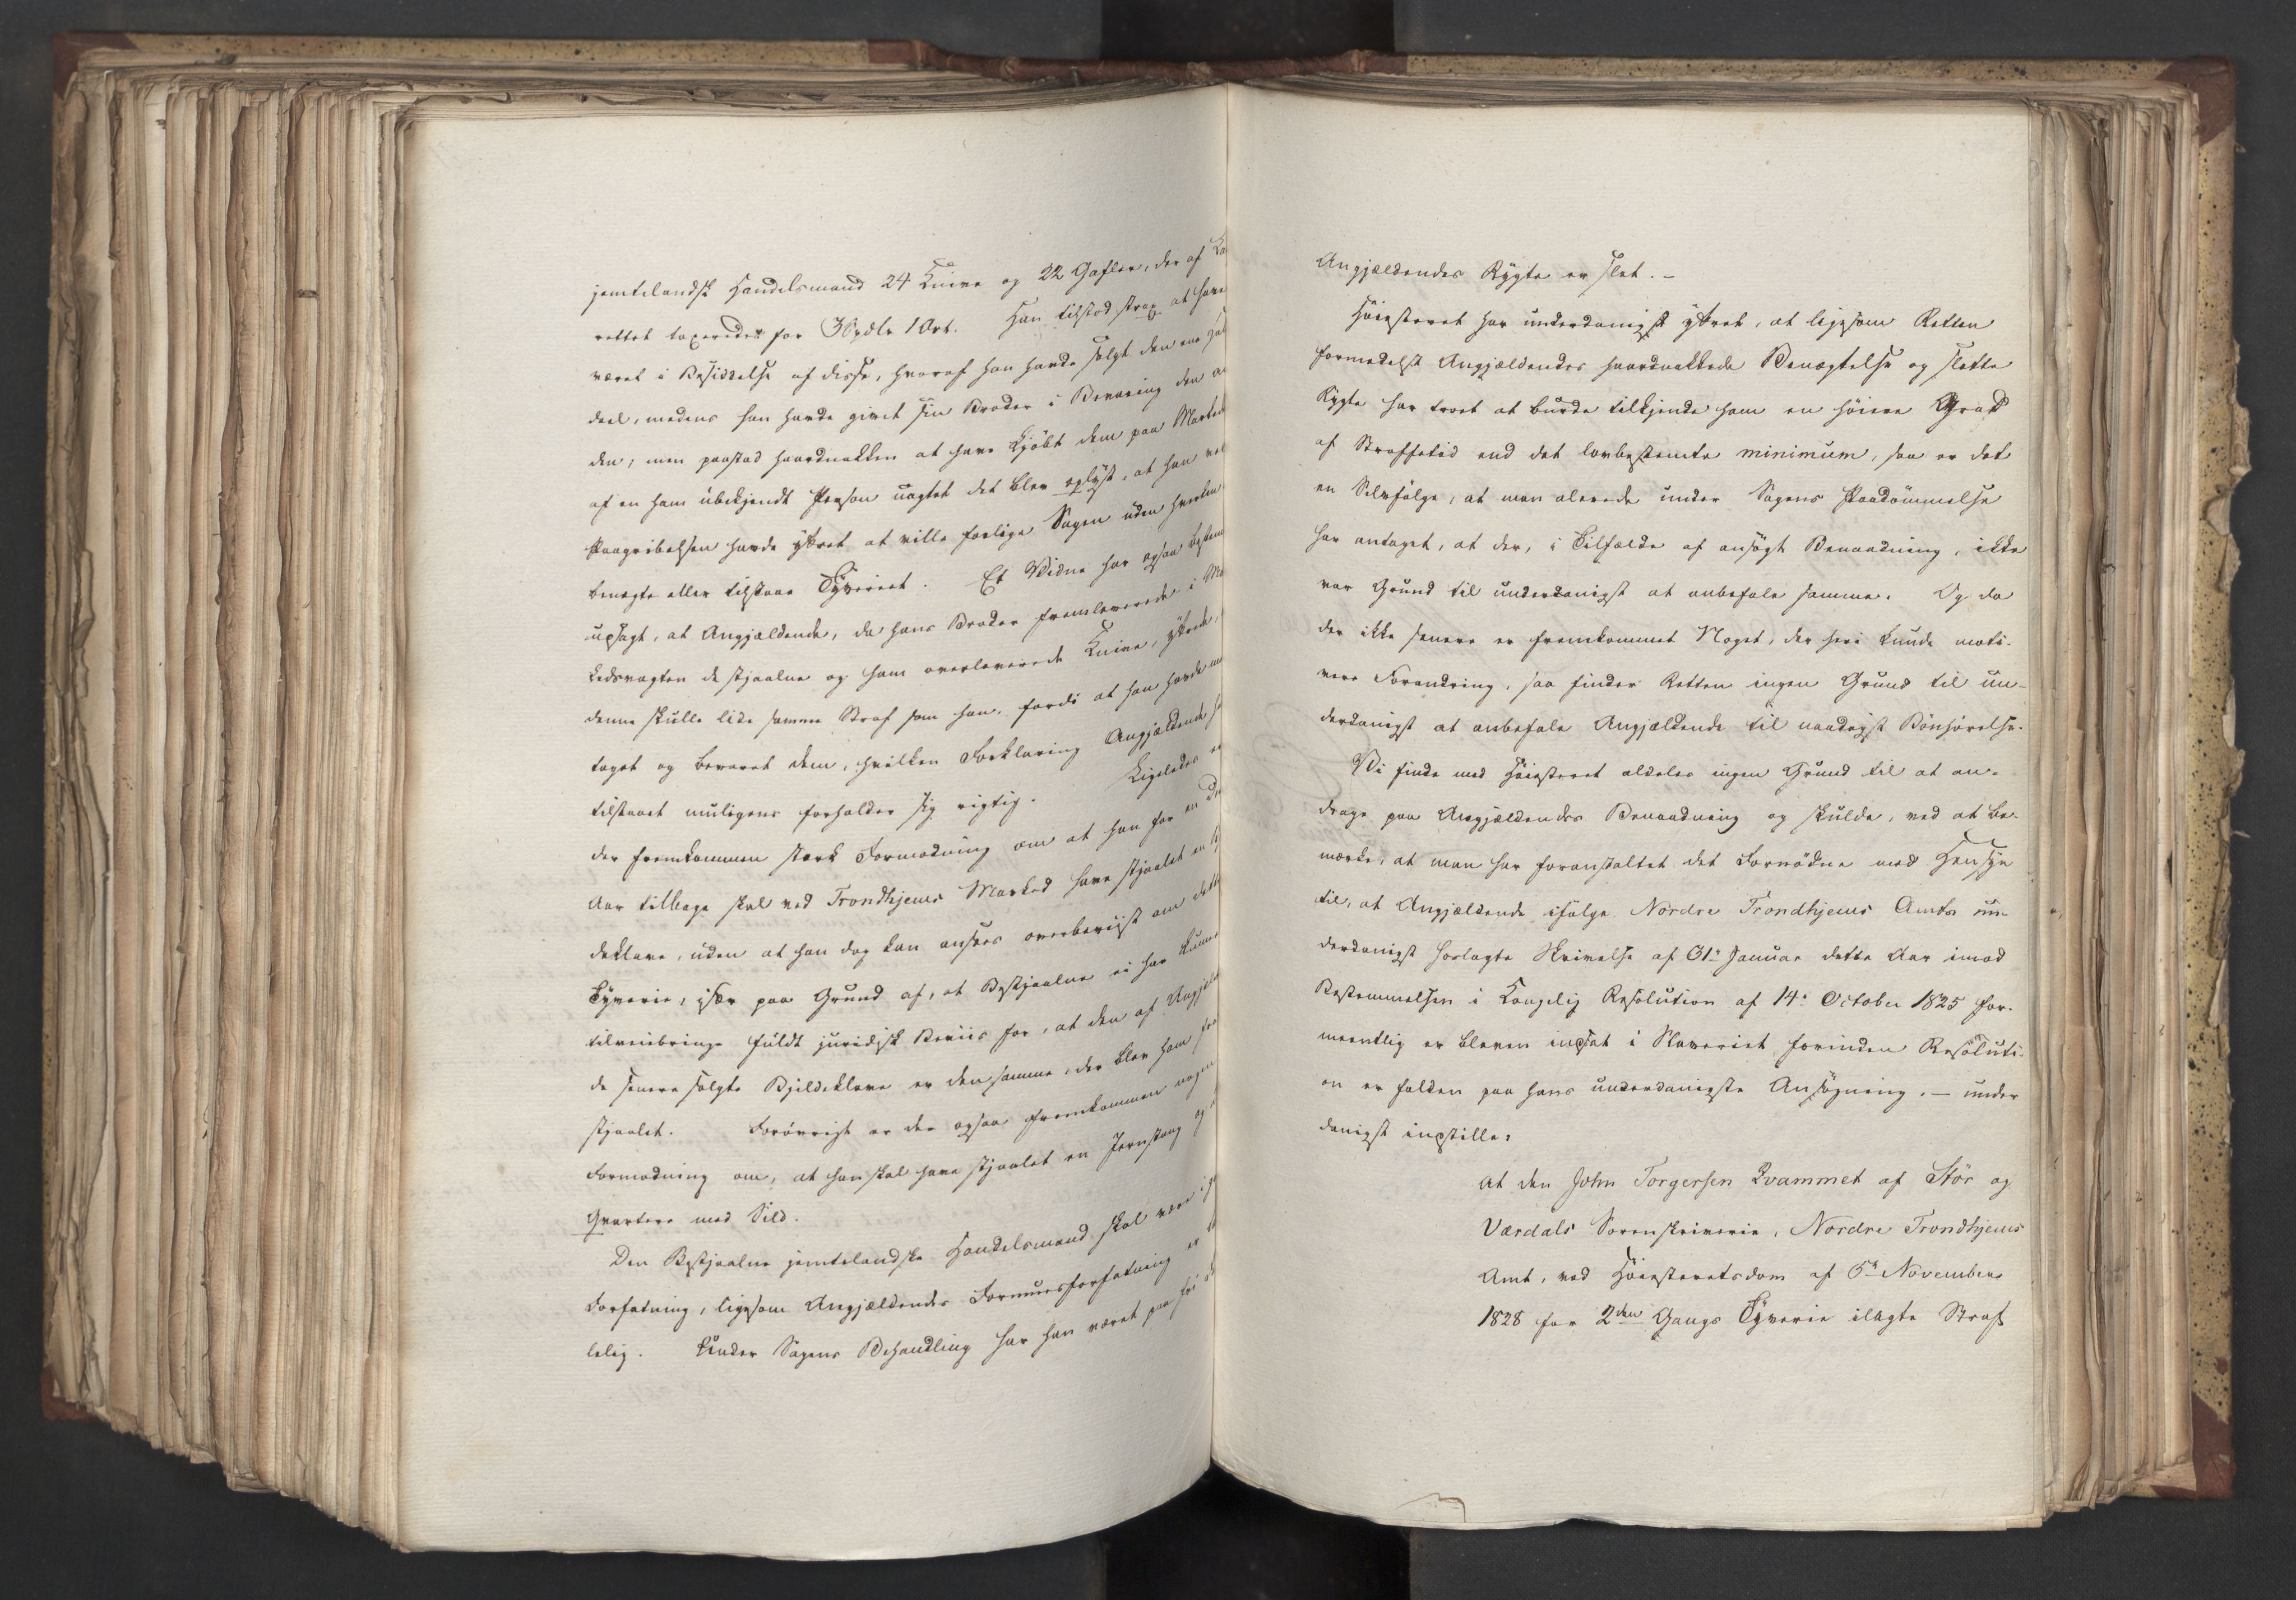 jemtelandsk Handelsmand 24 Knive og 22 Gafler, der af
rettet taxeredes for 3 Spdlr 1 Ort. Han tilstod strax at have
været i Besiddelse af disse, hvoraf han havde solgt den ene Halv
deel, medens han havde givet sin Broder i Bevaring den an
den; men paastod haardnakken at have kjöbt dem paa Marked
af en ham ubekjendt Person uagtet det blev oplyst, at han ved
Paagribelsen havde yttret at ville forlige Sagen uden hverken
benægte eller tilstaae Tyveriet. Et Vidne har ogsaa bestemt
udsagt, at Angjældende, da hans Broder fremleverede i Mar
kedsvagten de stjaalne og ham overleverede Knive, yttrede,
denne skulle lide samme Straf som han, fordi at han havde mod
taget og bevaret dem, hvilken Forklaring Angjældende har
tilstaaet muligens forholder sig rigtig. Ligeledes er
der fremkommen stærk Formodning om at han for en Deel
Aar tilbage skal ved Trondhjems Marked have stjaalet en Bj
deklave, uden at han dog kan ansees overbeviist om dette
Tyverie, især paa Grund af, at Bestjaalne ei har kunnet
tilveiebringe fuldt juridisk Beviis for, at den af Angjæl
de senere solgte Bjeldeklave er den samme, der blev ham fra
stjaalet. Forövrigt er der ogsaa fremkommen nogen
Formodning om, at han skal have stjaalet en Jernstang og
Qvarteer med Sild.
Den Bestjaalne jemtelandske Handelsmand skal være i god
Forfatning, ligesom Angjældendes Formuesforfatning er
lelig. Under Sagens Behandling har han været paa fri
Angjældendes Rygte er slet. –
Höiesteret har underdanigst yttret, at ligesom Retten
formedelst Angjældendes haardnakkede Benægtelse og slette
Rygte har troet at burde tilkjende ham en höiere Grad
af Straffetid end det lovbestemte minimum, saa er det
en Selvfölge, at man allerede under Sagens Paadömmelse
har antaget, at der, i Tilfælde af ansögt Benaadning, ikke
var Grund til underdanigst at anbefale samme. Og da
der ikke senere er fremkommet Noget, der heri kunde moti-
vere Forandring, saa finder Retten ingen Grund til un-
derdanigst at anbefale Angjældende til naadigst Bönhörelse.
Vi finde med Höiesteret aldeles ingen Grund til at an-
drage paa Angjældendes Benaadning og skulde, ved at be-
mærke, at man har foranstaltet det Fornödne med Hensyn
til, at Angjældende ifölge Nordre Trondhjems Amts un-
derdanigst forlagte Skrivelse af 31te Januar dette Aar imod
Bestemmelsen i Kongelig Resolution af 14de October 1825 for-
meentlig er bleven indsat i Slaveriet forinden Resoluti-
on er falden paa hans underdanigste Ansögning. – under
danigst indstille:
At den John Torgersen Qvammet af Stör og
Værdals Sorenskriverie, Nordre Trondhjems
Amt, ved Höiesteretsdom af 6te Novembers
1828 for 2den Gangs Tyverie ilagte Straf